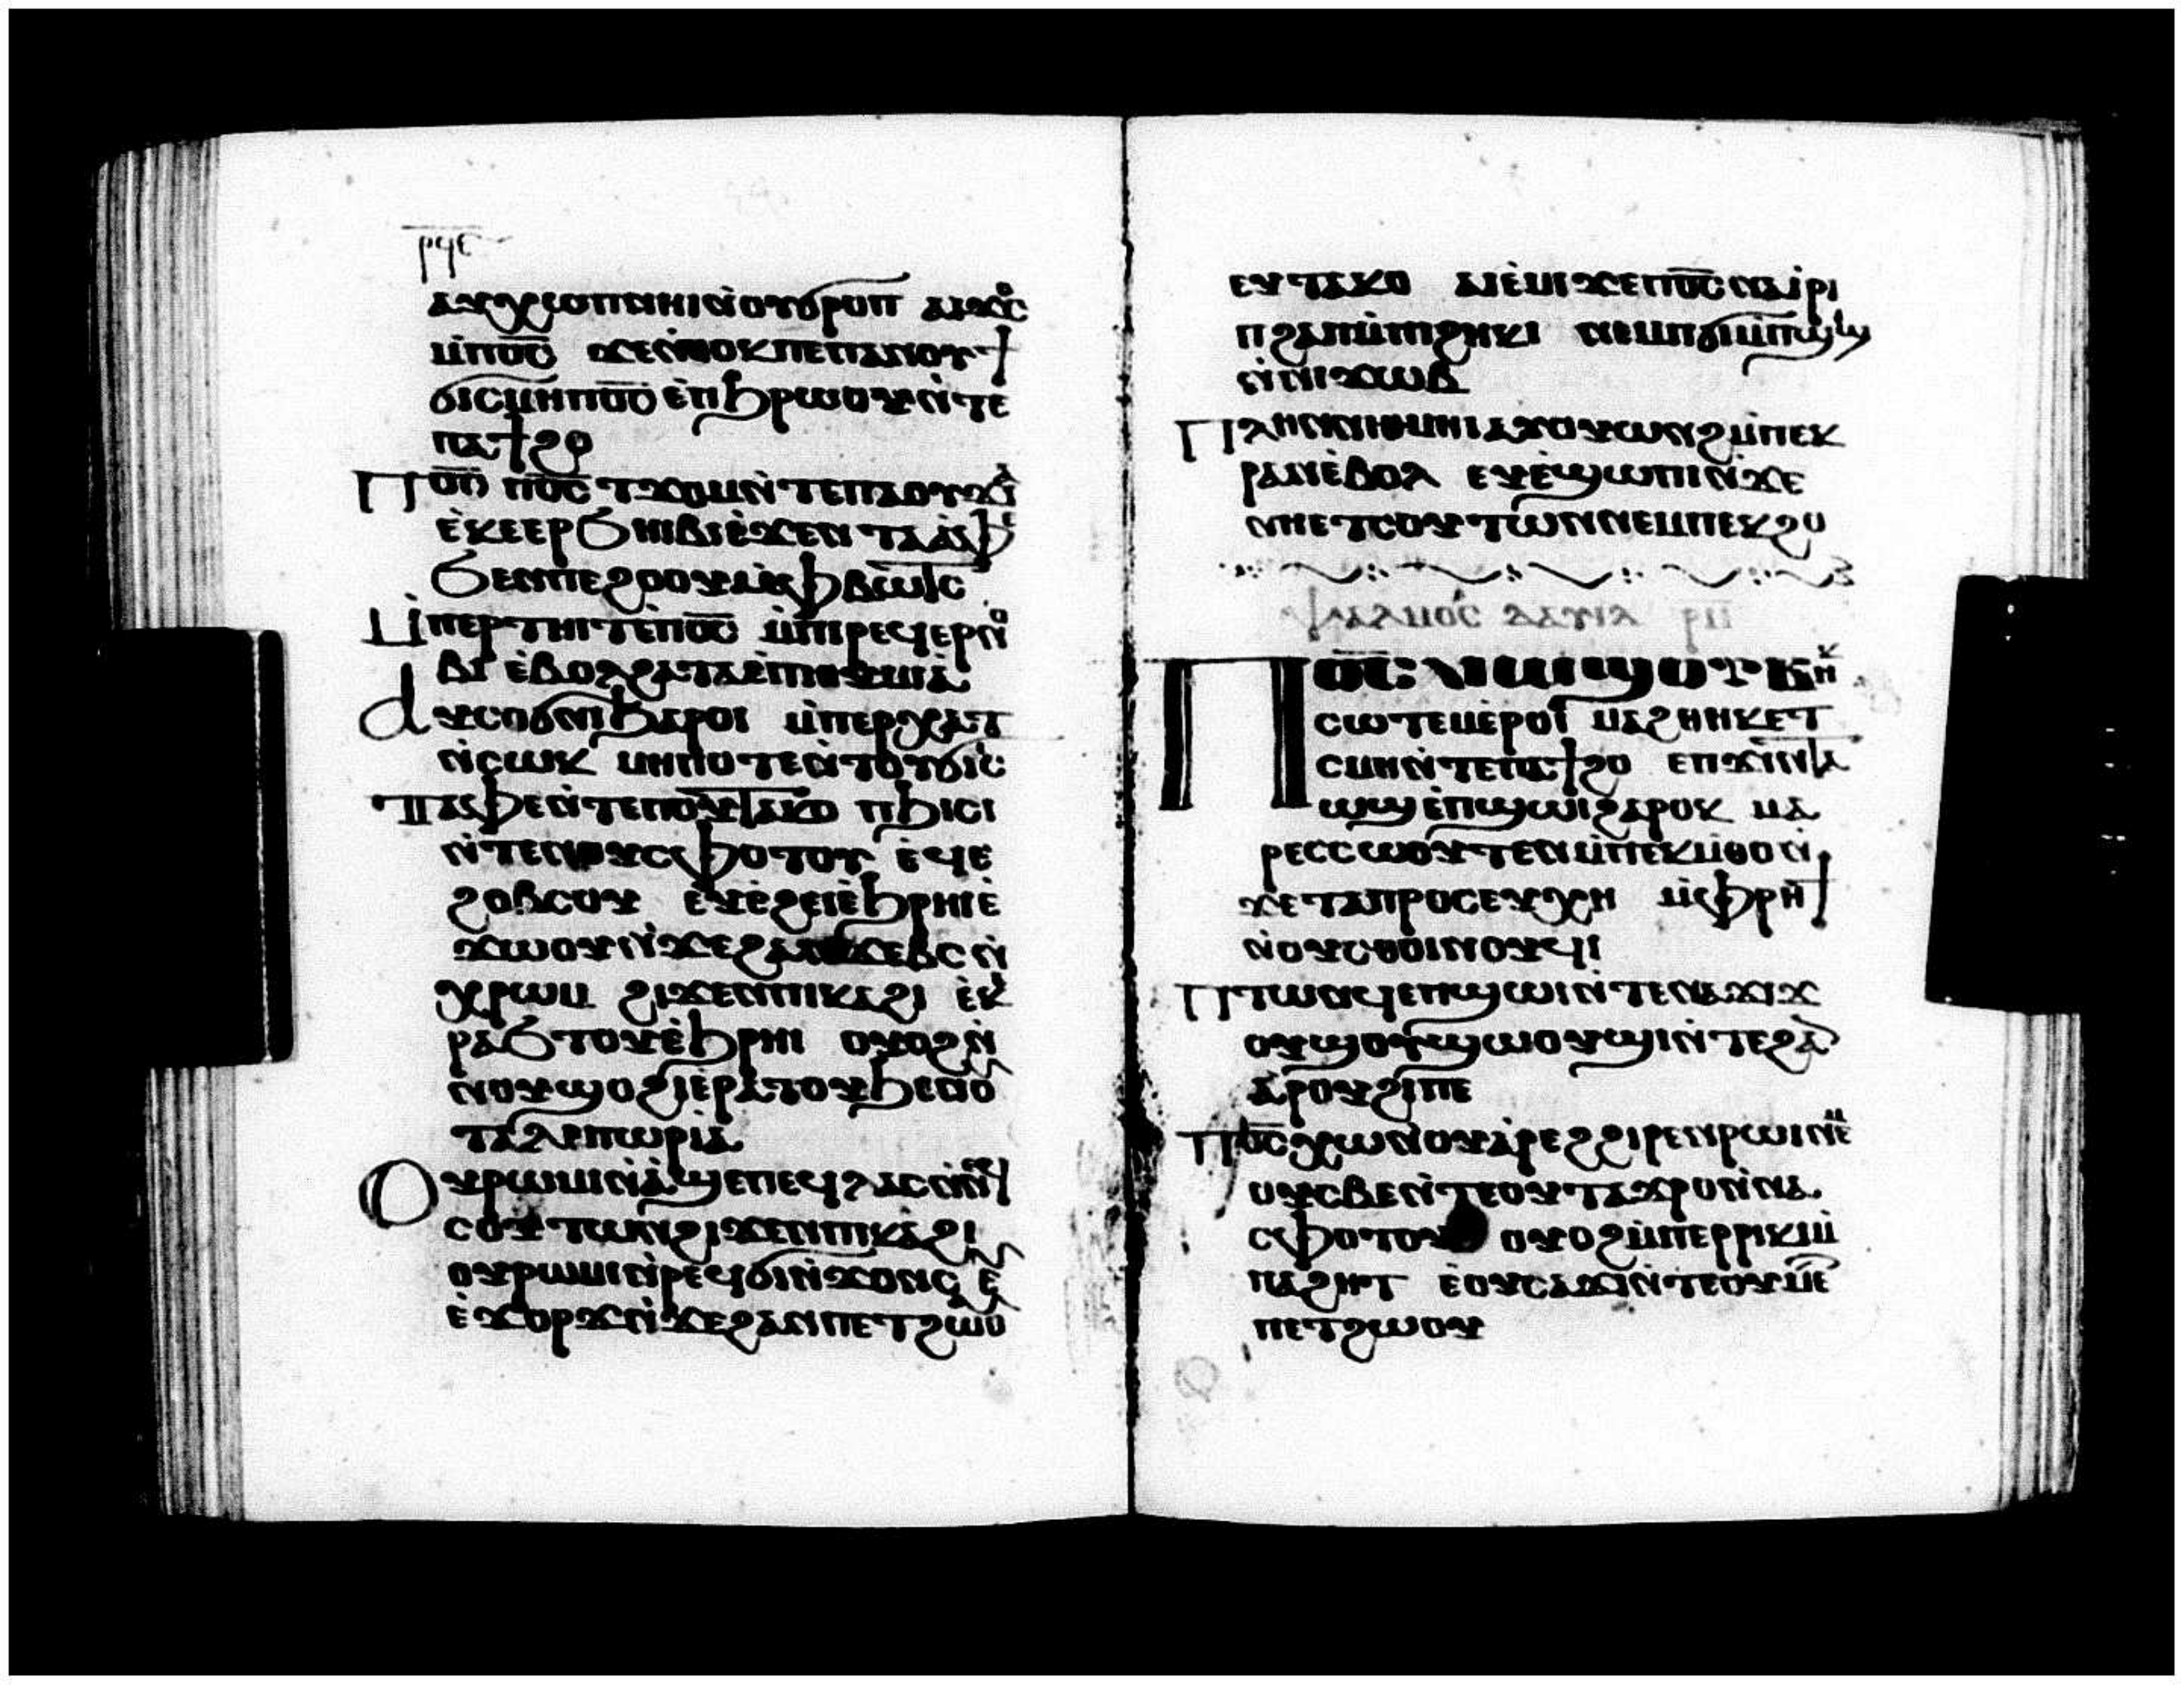 ⲣϥⲉ
ⲁⲩⲭⲱⲡ ⲛⲏⲓ ⲛ̇ⲟⲩϭⲣⲟⲡ ⲁⲓϫⲟⲥ
ⲙ̇ⲡⲟ̅ⲥ̅ ϫⲉ ⲛ̇ⲑⲟⲕ ⲡⲉ ⲡⲁⲛⲟⲩϯ
ϭⲓⲥⲙⲏ ⲡⲟ̅ⲥ̅ ⲉ̇ⲡϧⲣⲱⲟⲩ ⲛ̇ⲧⲉ
ⲡⲁϯϩⲟ
Ⲡⲟ̅ⲥ̅ ⲡⲟ̅ⲥ̅ ⲧϫⲟⲙ ⲛ̇ⲧⲉ ⲡⲁⲟⲩϫⲁⲓ
ⲉ̇ⲕⲉⲉⲣϧⲏⲓⲃⲓ ⲉ̇ϫⲉⲛ ⲧⲁⲁ̇ⲫⲉ
ϧⲉⲛ ⲡⲉϩⲟⲟⲩ ⲙ̇ⲫⲃⲱⲧⲥ
Ⲙ̇ⲡⲉⲣⲧⲏⲓⲧ ⲉ̇ⲡⲟ̅ⲥ̅ ⲙ̇ⲡⲓⲣⲉϥⲉⲣⲛⲟ
ⲃⲓ ⲉ̇ⲃⲟⲗϩⲁ ⲧⲁⲉ̇ⲡⲓⲑⲩⲙⲓⲁ
Ⲁⲩⲥⲟϭⲛⲓ ϧⲁⲣⲟⲓ ⲙ̇ⲡⲉⲣⲭⲁⲧ
ⲛ̇ⲥⲱⲕ ⲙⲏⲡⲟⲧⲉ ⲛ̇ⲧⲟⲩϭⲓⲥⲓ
Ⲧⲁⲫⲉ ⲛ̇ⲧⲉ ⲡⲟⲩⲧⲁⲕⲟ ⲡϧⲓⲥⲓ
ⲛ̇ⲧⲉ ⲛⲟⲩⲥⲫⲟⲧⲟⲩ ⲉ̇ϥⲉ
ϩⲟⲃⲥⲟⲩ ⲉⲩⲉ̇ϩⲉⲓ ⲉ̇ϧⲣⲏⲓ ⲉ̇
ϫⲱⲟⲩ ⲛ̇ϫⲉ ϩⲁⲛϫⲉⲃⲥ ⲛ̇
ⲭⲣⲱⲙ ϩⲓϫⲉⲛ ⲡⲓⲕⲁϩⲓ ⲉ̇ⲕⲉ
ⲣⲁϧⲧⲟⲩ ⲉ̇ϧⲣⲏⲓ ⲟⲩⲟϩ ⲛ̇
ⲛⲟⲩϣⲟϩⲓ ⲉ̇ⲣⲁⲧⲟⲩ ϧⲉⲛ ⲟⲩ
ⲧⲁⲗⲉⲡⲱⲣⲓⲁ
Ⲟⲩⲣⲱⲙⲓ ⲛ̇ⲁϣⲉ ⲡⲉϥⲗⲁⲥ ⲛ̇ⲛⲉϥ
ⲥⲟⲩⲧⲱⲛ ϩⲓϫⲉⲛ ⲡⲓⲕⲁϩⲓ
ⲟⲩⲣⲱⲙⲓ ⲛ̇ⲣⲉϥϭⲓⲛ̇ϫⲟⲛⲥ ⲉⲩ
ⲉ̇ϫⲟⲣϫ ⲛ̇ϫⲉ ϩⲁⲛⲡⲉⲧϩⲱⲟⲩ
ⲉⲩⲧⲁⲕⲟ ⲁⲓⲉ̇ⲙⲓ ϫⲉ ⲡⲟ̅ⲥ̅ ⲛⲁⲓ̇ⲣⲓ
ⲡϩⲁⲡ ⲙ̇ⲡⲓϩⲏⲕⲓ ⲛⲉⲙ ⲡϭⲓⲙ̇ⲡϣⲓϣ
ⲛ̇ⲛⲓϫⲱⲃ
Ⲡⲗⲏⲛ ⲛⲓⲑⲙⲏⲓ ⲁⲩⲟⲩⲱⲛϩ ⲙ̇ⲡⲉⲕ
ⲣⲁⲛ ⲉ̇ⲃⲟⲗ ⲉⲩⲉ̇ϣⲱⲡⲓ ⲛ̇ϫⲉ
ⲛⲏⲉⲧⲥⲟⲩⲧⲱⲛ ⲛⲉⲙ ⲡⲉⲕϩⲟ
ⲯⲁⲗⲙⲟⲥ ⲇⲁⲩⲓⲇ ⲣⲙ
Ⲡⲟ̅ⲥ̅ ⲁⲓⲱϣ ⲟⲩⲃⲏⲕ
ⲥⲱⲧⲉⲙ ⲉ̇ⲣⲟⲓ ⲙⲁϩⲑⲏⲕ ⲉⲧ
ⲥⲙⲏ ⲛ̇ⲧⲉ ⲡⲁϯϩⲟ ⲉⲡϫⲓⲛⲧⲁ
ⲱϣ ⲉ̇ⲡϣⲱⲓ ϩⲁⲣⲟⲕ ⲙⲁ
ⲣⲉⲥⲥⲱⲟⲩⲧⲉⲛ ⲙ̇ⲡⲉⲕⲙ̇ⲑⲟ ⲛ̇
ϫⲉ ⲧⲁⲡⲣⲟⲥⲉⲩⲭⲏ ⲙ̇ⲫⲣⲏϯ
ⲛ̇ⲟⲩⲥⲑⲟⲓⲛⲟⲩϥⲓ
Ⲡⲧⲱⲛϥ ⲉⲡϣⲱⲓ ⲛ̇ⲧⲉ ⲛⲁϫⲓϫ
ⲟⲩϣⲟⲩϣⲱⲟⲩϣⲓ ⲛ̇ⲧⲉ ϩⲁⲛ
ⲁⲣⲟⲩϩⲓ ⲡⲉ
Ⲡⲟ̅ⲥ̅ ⲭⲱ ⲛⲟⲩⲁ̇ⲣⲉϩ ϩⲓⲣⲉⲛ ⲣⲱⲓ ⲛⲉⲙ
ⲟⲩⲥⲃⲉ ⲛ̇ⲧⲉ ⲟⲩⲧⲁϫⲣⲟ ⲛ̇ⲛⲁ
ⲥⲫⲟⲧⲟⲩ ⲟⲩⲟϩ ⲙ̇ⲡⲉⲣⲣⲓⲕⲓ ⲙ̇
ⲡⲁϩⲏⲧ ⲉ̇ⲟⲩⲥⲁϫⲓ ⲛ̇ⲧⲉ ⲟⲩⲙⲉⲧ
ⲡⲉⲧϩⲱⲟⲩ